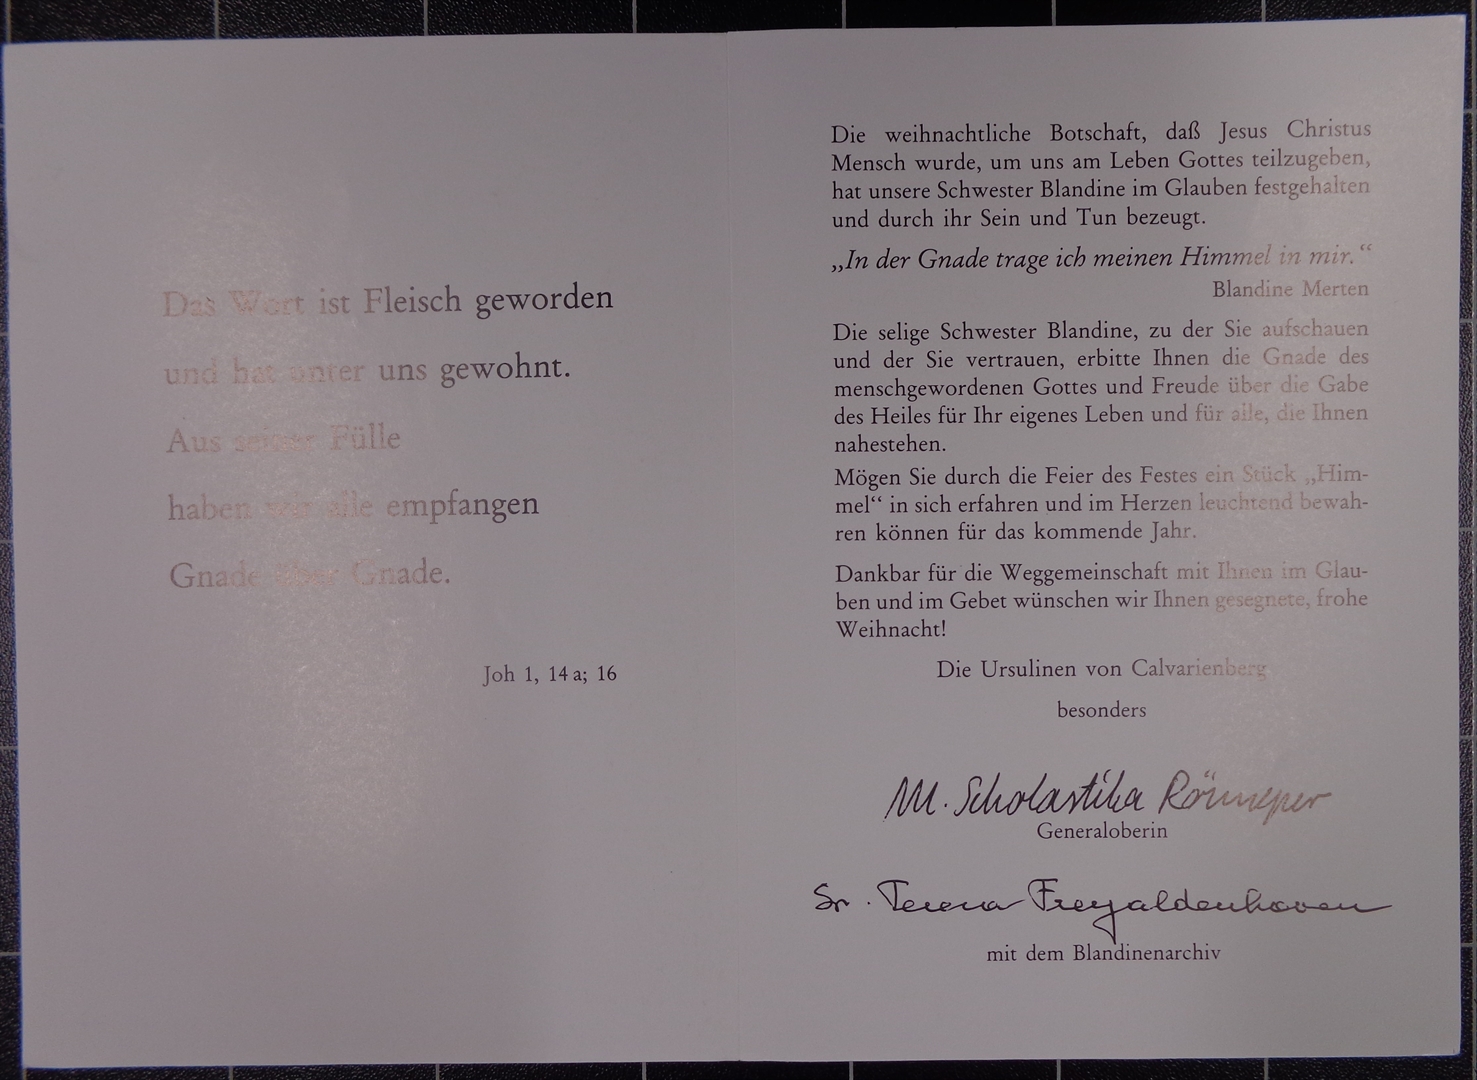 Das Wort ist Fleisch geworden
und hat unter uns gewohnt.
Aus seiner Fülle
haben wir alle empfangen
Gnade über Gnade.
Joh 1, 14 a; 16
Die weihnachtliche Botschaft, daß Jesus Christus
Mensch wurde, um uns am Leben Gottes teilzugeben,
hat unsere Schwester Blandine im Glauben festgehalten
und durch ihr Sein und Tun bezeugt.
„In der Gnade trage ich meinen Himmel in mir.“
Blandine Merten
Die selige Schwester Blandine, zu der Sie aufschauen
und der Sie vertrauen, erbitte Ihnen die Gnade des
menschgewordenen Gottes und Freude über die Gabe
des Heiles für Ihr eigenes Leben und für alle, die Ihnen
nahestehen.
Mögen Sie durch die Feier des Festes ein Stück „Him-
mel“ in sich erfahren und im Herzen leuchtend bewah-
ren können für das kommende Jahr.
Dankbar für die Weggemeinschaft mit Ihnen im Glau-
ben und im Gebet wünschen wir Ihnen gesegnete, frohe
Weihnacht!
Die Ursulinen von Calvarienberg
besonders
M. Scholastika
Generaloberin
Sr. Teresa Freyaldenhoven
mit dem Blandinenarchiv